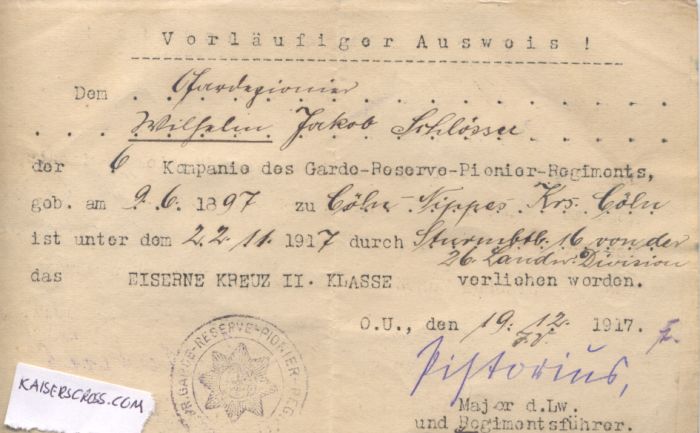 Vorläufiger Ausweis!
Dem Gardepionier
Wilhelm Jakob Schlösser
der 6 Kompanie des Garde-Reserve-Pionier-Regiments,
geb. am 9.6. 1897 zu Cöln Nippes Krs. Cöln
ist unter dem 22.11.1917 durch Sturmbtl. 16 von der
26. Landw. Division
das EISERNE KREUZ II. KLASSE verliehen worden.
O.U., den 19.12. 1917.
Pistorius,
Major d.Lw.
und Regimentsführer.
GARDE-RESERVE-PIONIER-REG
KAISERSCROSS.COM